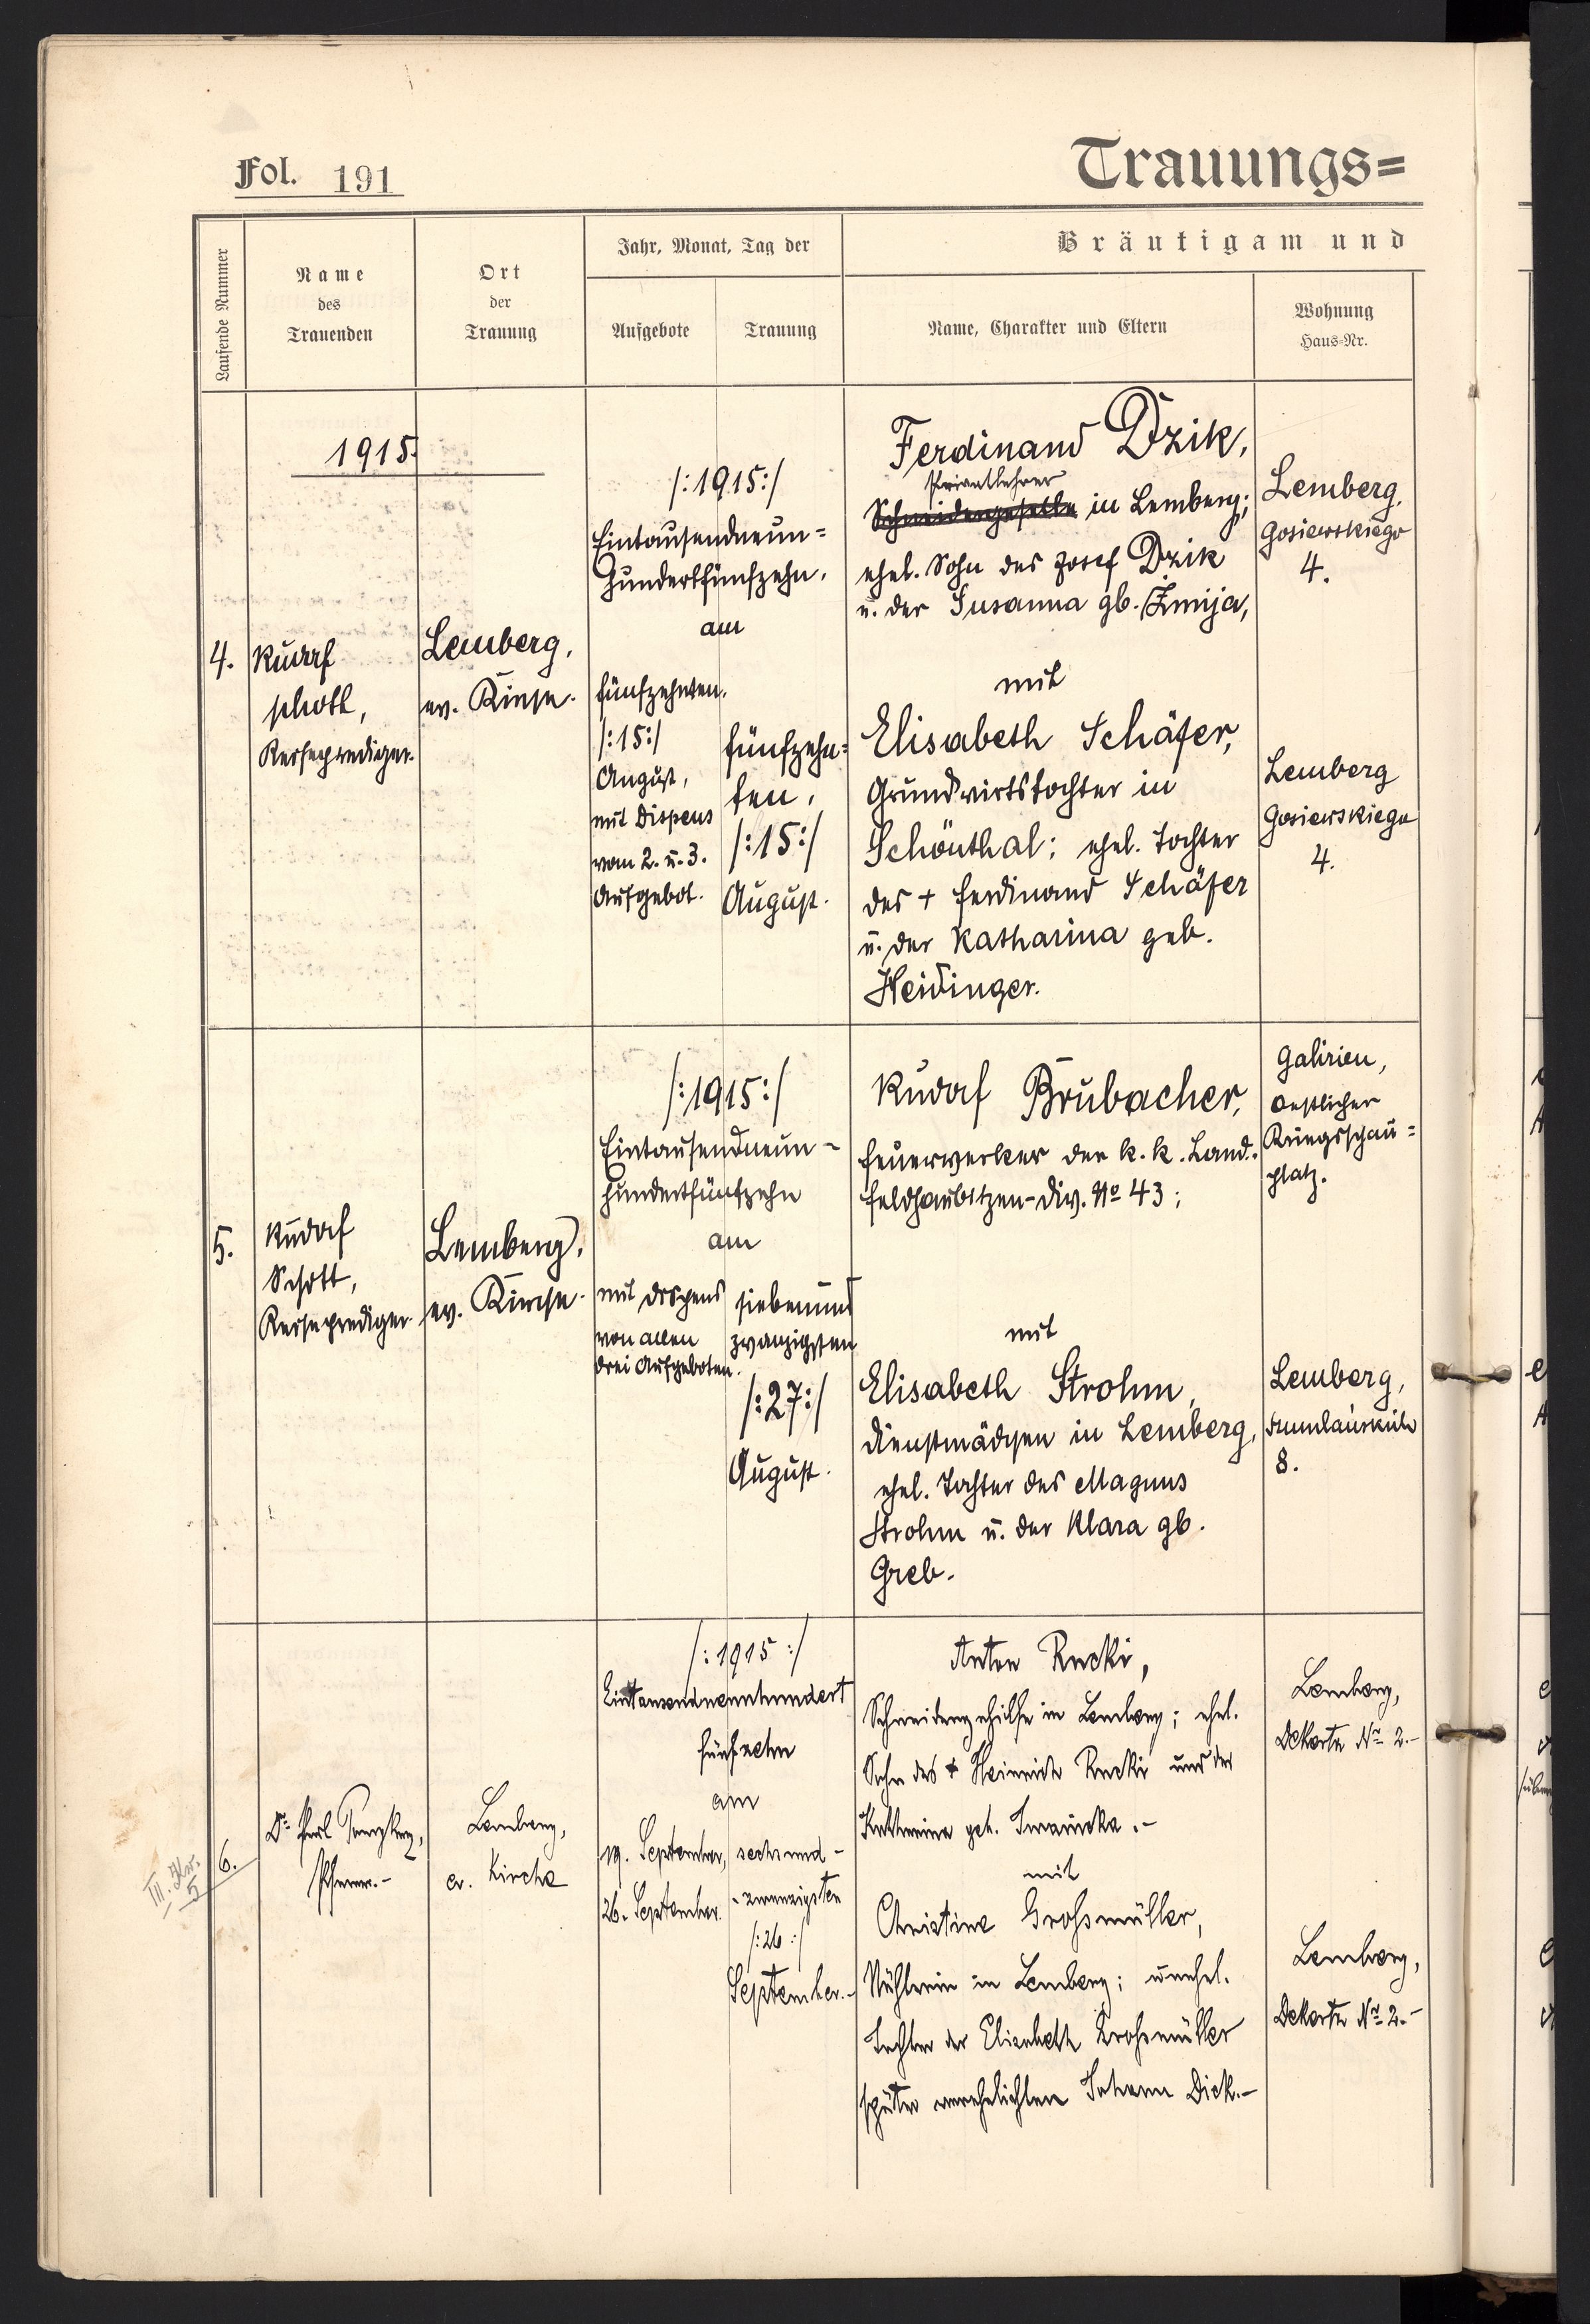 Fol. 191
Trauungs=
Laufende Nummer
Name
des
Trauenden
Ort
der
Trauung
Jahr, Monat, Tag der
Aufgebote
Trauung
Bräutigam und
Name, Charakter und Eltern
Wohnung
Haus=Nr.
1915.
4.
Rudolf
Schott,
Reiseprediger.
Lemberg,
ev. Kirche.
/:1915:/
Eintausendneun=
hundertfünfzehn,
am
fünfzehnten,
/:15:/
August,
mit Dispens
vom 2. u. 3.
Aufgebot.
fünfzehn=
ten,
/:15:/
August.
Ferdinand Dzik,
Privatlehrer
Schneidergeselle in Lemberg;
ehel. Sohn des Josef Dzik
u. der Susanna gb. Żmija,
mit
Elisabeth Schäfer,
Grundwirtstochter in
Schönthal; ehel. Tochter
des + Ferdinand Schäfer
u. der Katharina geb.
Heidinger.
Lemberg,
Gosiewskiego
4.
Lemberg
Gosiewskiego
4.
5.
Rudolf
Schott,
Reiseprediger.
Lemberg,
ev. Kirche.
/:1915:/
Eintausendneun-
hundertfünfzehn
am
mit Dispens
von allen
drei Aufgeboten.
siebenund
zwanzigsten
/:27:/
August.
Rudolf Brubacher,
Feuerwerker der k. k. Land.-
feldhaubitzen-Div. No 43;
mit
Elisabeth Strohm,
Dienstmädchen in Lemberg,
ehel. Tochter des Magnus
Strohm u. der Klara gb.
Greb.
Galizien,
oestlicher
Kriegsschau=
platz.
Lemberg,
8.
III. Kr.
5
6.
Pfarrer.-
Lemberg,
ev. Kirche
/:1915:/
Eintausendneunhundert
fünfzehn
am
19. September,
26. September.
sechsund-
-zwanzigsten
/:26:/
September.-
Anton Rucki,
Schneidergehilfe in Lemberg; ehel.
Sohn des + Heinrich Rucki und der
Katharina geb.
mit
Christine Großmüller,
Nähterin in Lemberg; unehel.
Tochter der Elisabeth Großmüller
später verehelichten Johann Dick.-
Lemberg,
Dekerta Nr. 2.-
Lemberg,
Dekerta Nr. 2.-